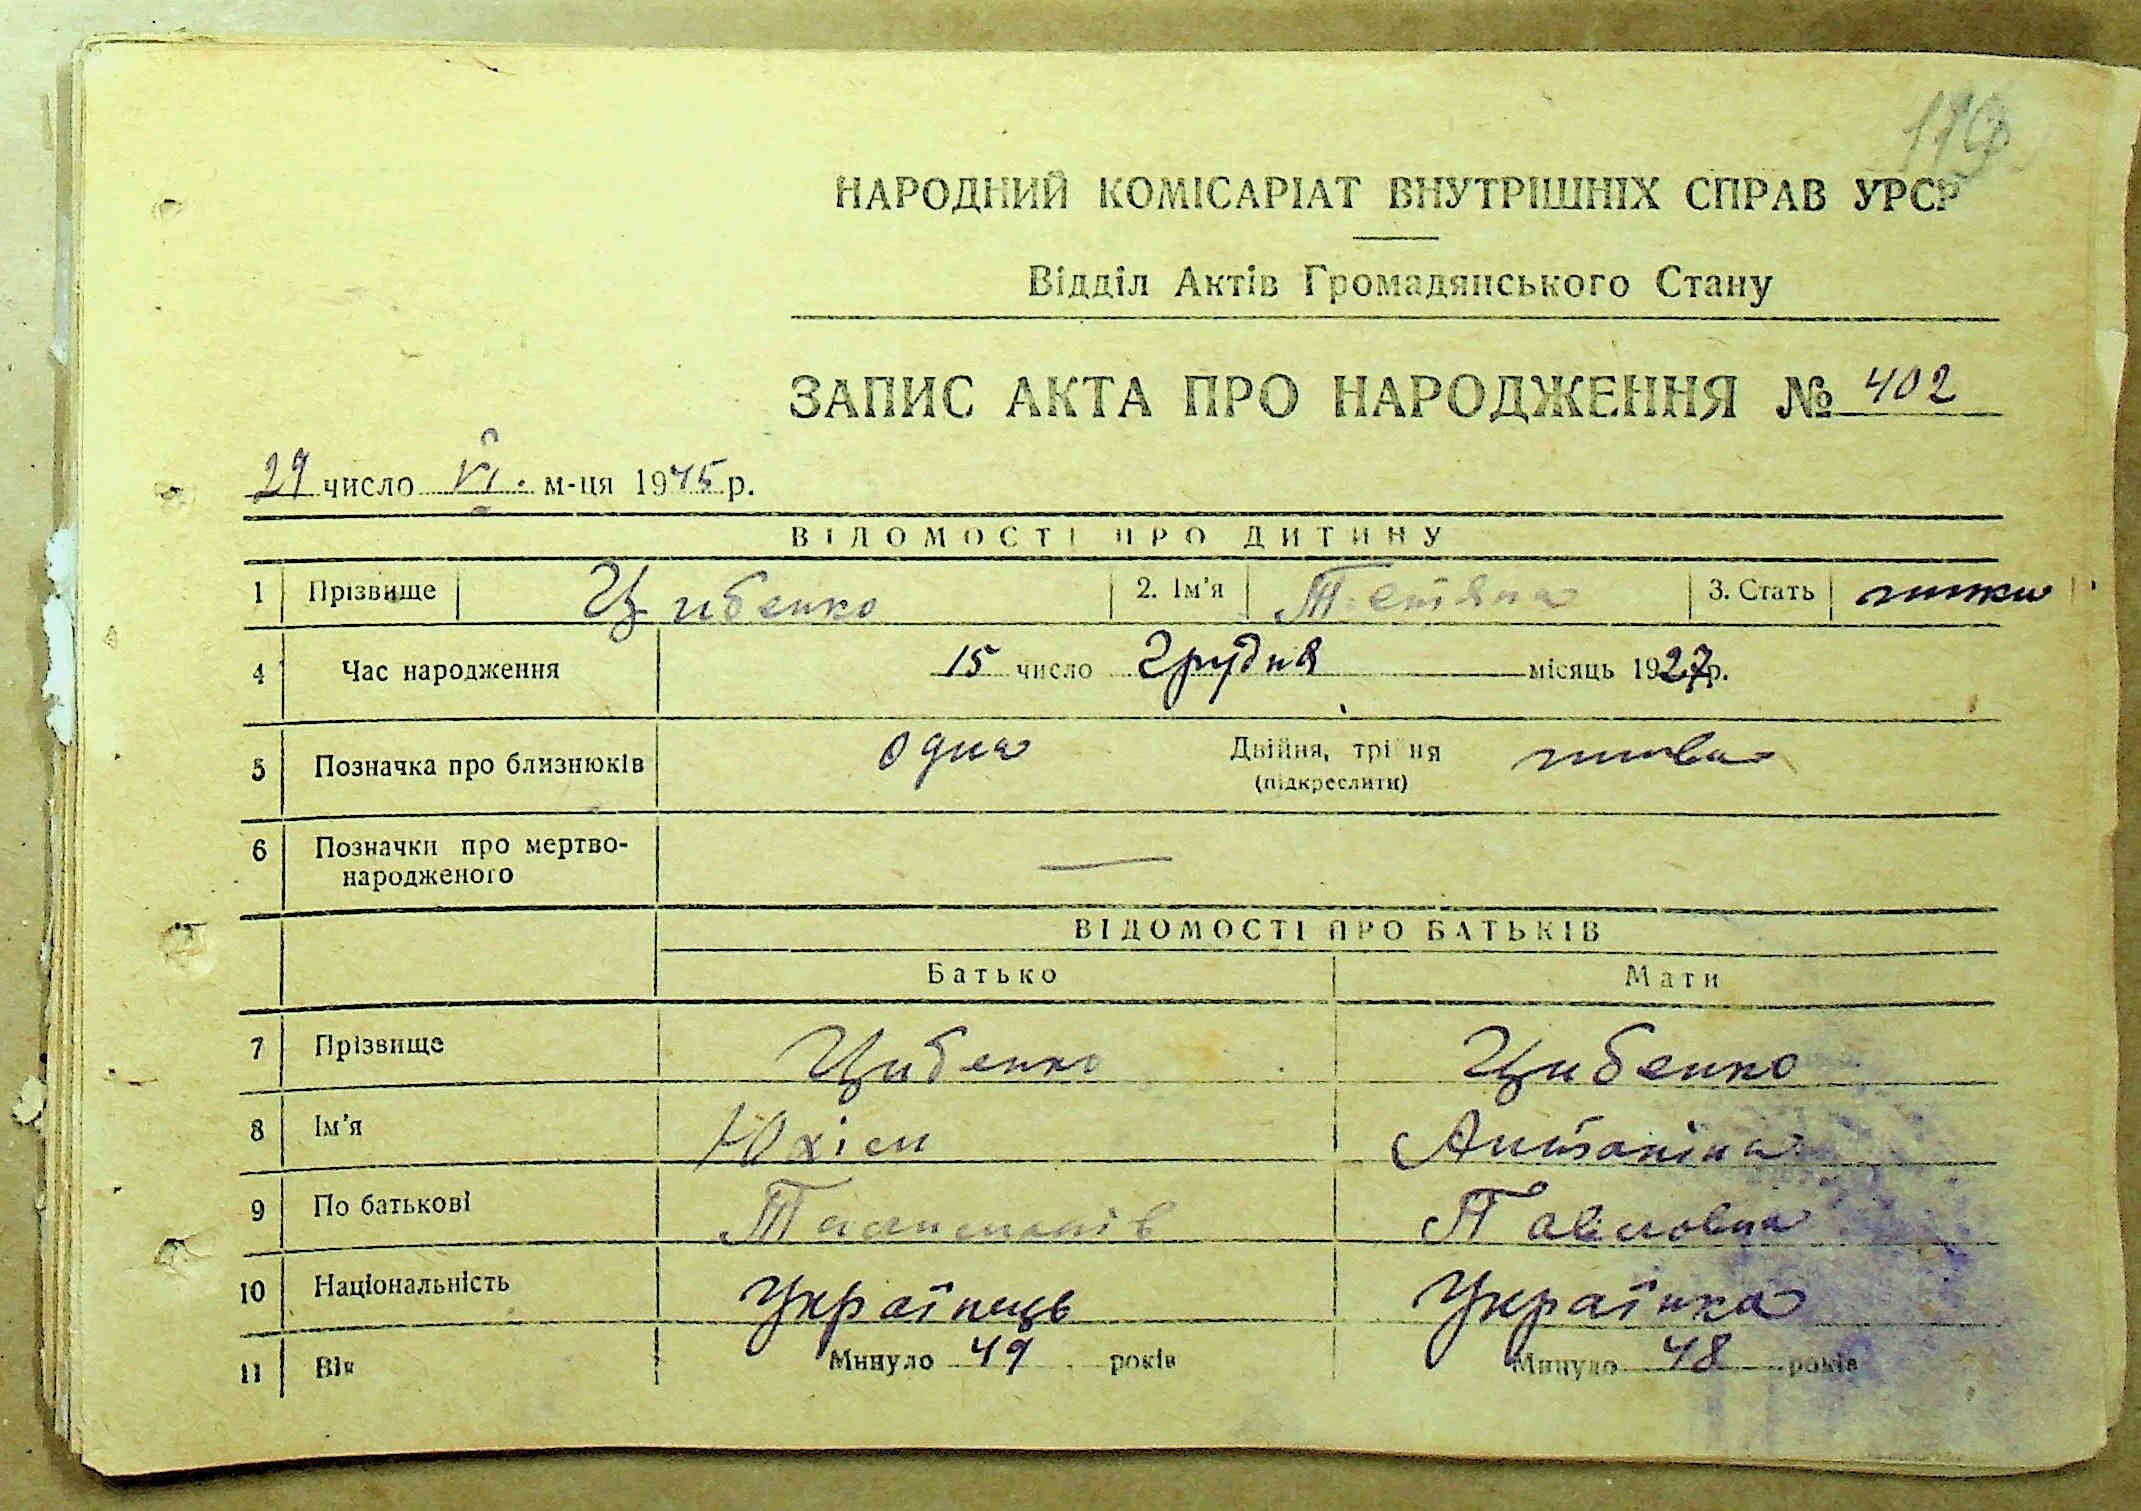 НАРОДНИЙ КОМІСАРІАТ ВНУТРІШНІХ СПРАВ УРСР
Відділ Актів Громадянського Стану
ЗАПИС АКТА ПРО НАРОДЖЕННЯ № 402
29 число VI. м-ця 1945 р.
ВІДОМОСТІ ПРО ДИТИНУ
1 Прізвище Цибенко 2. Ім'я Тетяна 3. Стать
4 Час народження 15 число Грудня місяць 1927 р.
5 Позначка про близнюків одна Двійня, трійня
(підкреслити)
6 Позначки про мертво-
народженого —
ВІДОМОСТІ ПРО БАТЬКІВ
Батько Мати
7 Прізвище Цибенко Цибенко
8 Ім'я Юхім Антоніна
9 По батькові Павловна
10 Національність Українець Українка
11 Вік Минуло 49 років Минуло 48 років